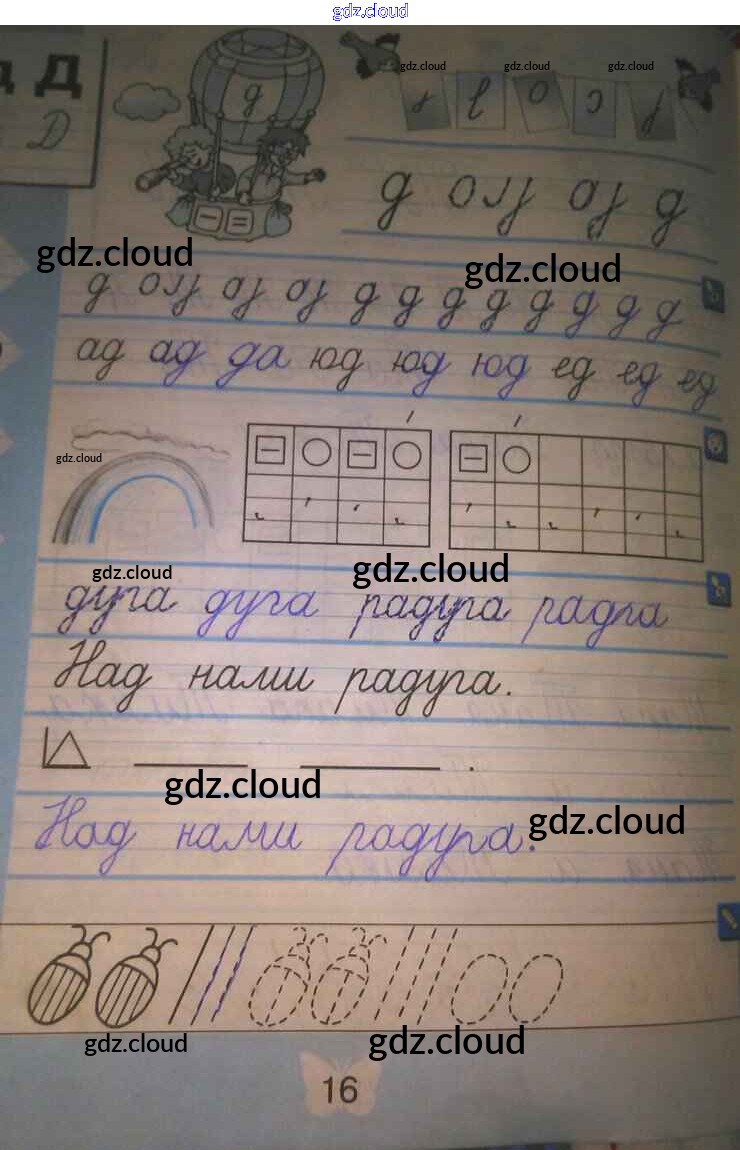 gdz.cloud
Д
Д
д
gdz.cloud gdz.cloud gdz.cloud
д
gdz.cloud gdz.cloud
д д д д д д д д д
ад ад да юд юд юд ед ед ед
gdz.cloud
gdz.cloud gdz.cloud
дуга дуга радуга радга
Над нами радуга.
gdz.cloud
Над нами радуга. gdz.cloud
gdz.cloud gdz.cloud
16